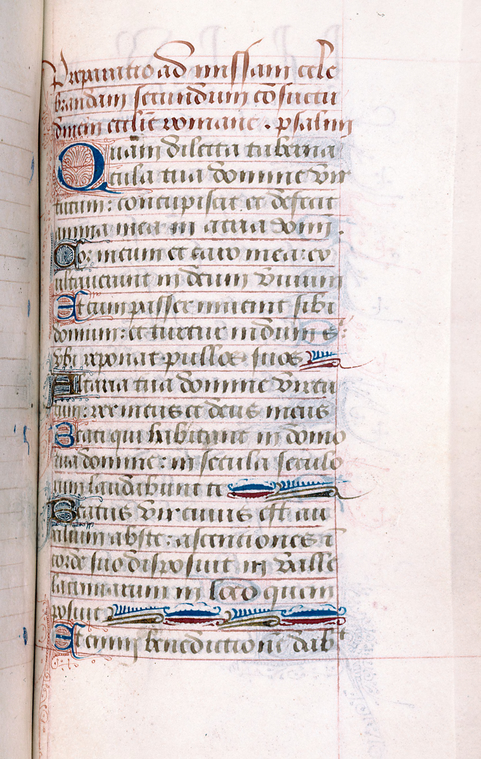 Preparatio ad missam cele
brandam secundum cōsuetu
dinem ecclīe romane. psalm
Quam dilecta taberna
cula tua domine vir
tutum: concupiscit et deficit
anima mea in atria domī.
Cor meum et caro mea: ex
ultauerunt in deum viuum
Etenim passer inuenit sibi
domum: et turtur nidum s
vbi reponat pullos suos
Altaria tua domine virtu
tum: rex meus et deus meus
Beati qui habitant in domo
tua domine: in secula seculo
rum laudabunt te
Beatus vir cuius est aux
ilium abs te: ascensiones ī
corde suo disposuit in valle
lacrimarum in loco quem
posuit
Etenim benedictionē dabit